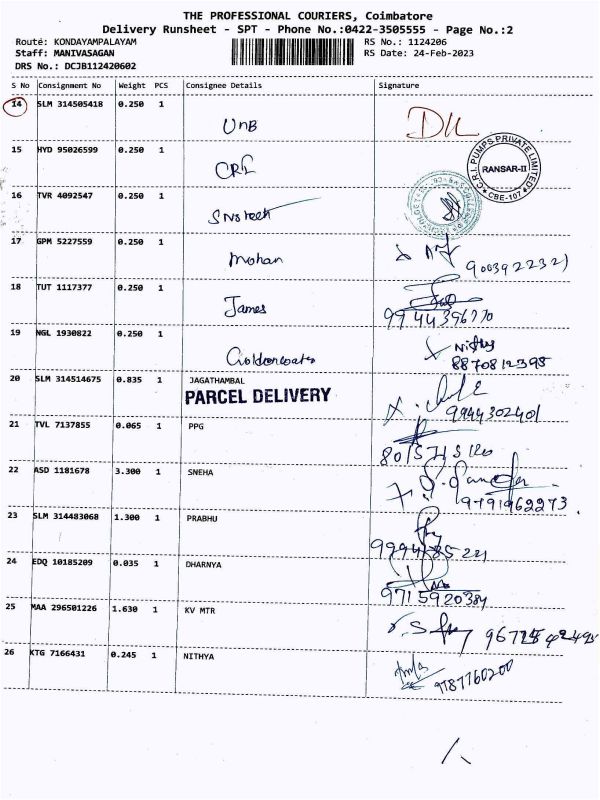 THE PROFESSIONAL COURIERS, Coimbatore
Delivery Runsheet - SPT - Phone No.:0422-3505555 - Page No.:2
Route: KONDAYAMPALAYAM RS No.: 1124206
Staff: MANIVASAGAN RS Date: 24-Feb-2023
DRS No.: DCJB112420602
S No Consignment No Weight PCS Consignee Details Signature
14 SLM 314505418 0.250 1
UnB
15 HYD 95026599 0.250 1
CRI
C.R.I. PUMPS PRIVATE LIMITED
RANSAR-II
CBE-107
16 TVR 4092547 0.250 1
17 GPM 5227559 0.250 1
Mohan
9003922321
18 TUT 1117377 0.250 1
James
9944396770
19 NGL 1930822 0.250 1
8870812395
20 SLM 314514675 0.835 1 JAGATHAMBAL
PARCEL DELIVERY
9944302401
21 TVL 7137855 0.065 1 PPG
22 ASD 1181678 3.300 1 SNEHA
9791962273
23 SLM 314483068 1.300 1 PRABHU
24 EDQ 10185209 0.035 1 DHARNYA
9715920384
25 MAA 296501226 1.630 1 KV MTR
26 KTG 7166431 0.245 1 NITHYA
9787760200